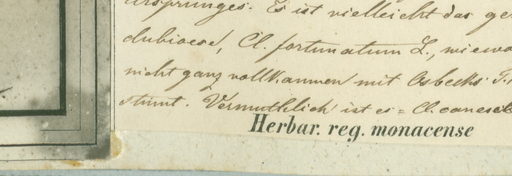 Ursprunges. Es ist vielleicht das
Cl. fortunatum L.,
nicht ganz vollkommen mit Osbecks
stimt. Vermuthlich ist es = Cl.
Herbar. reg. monacense